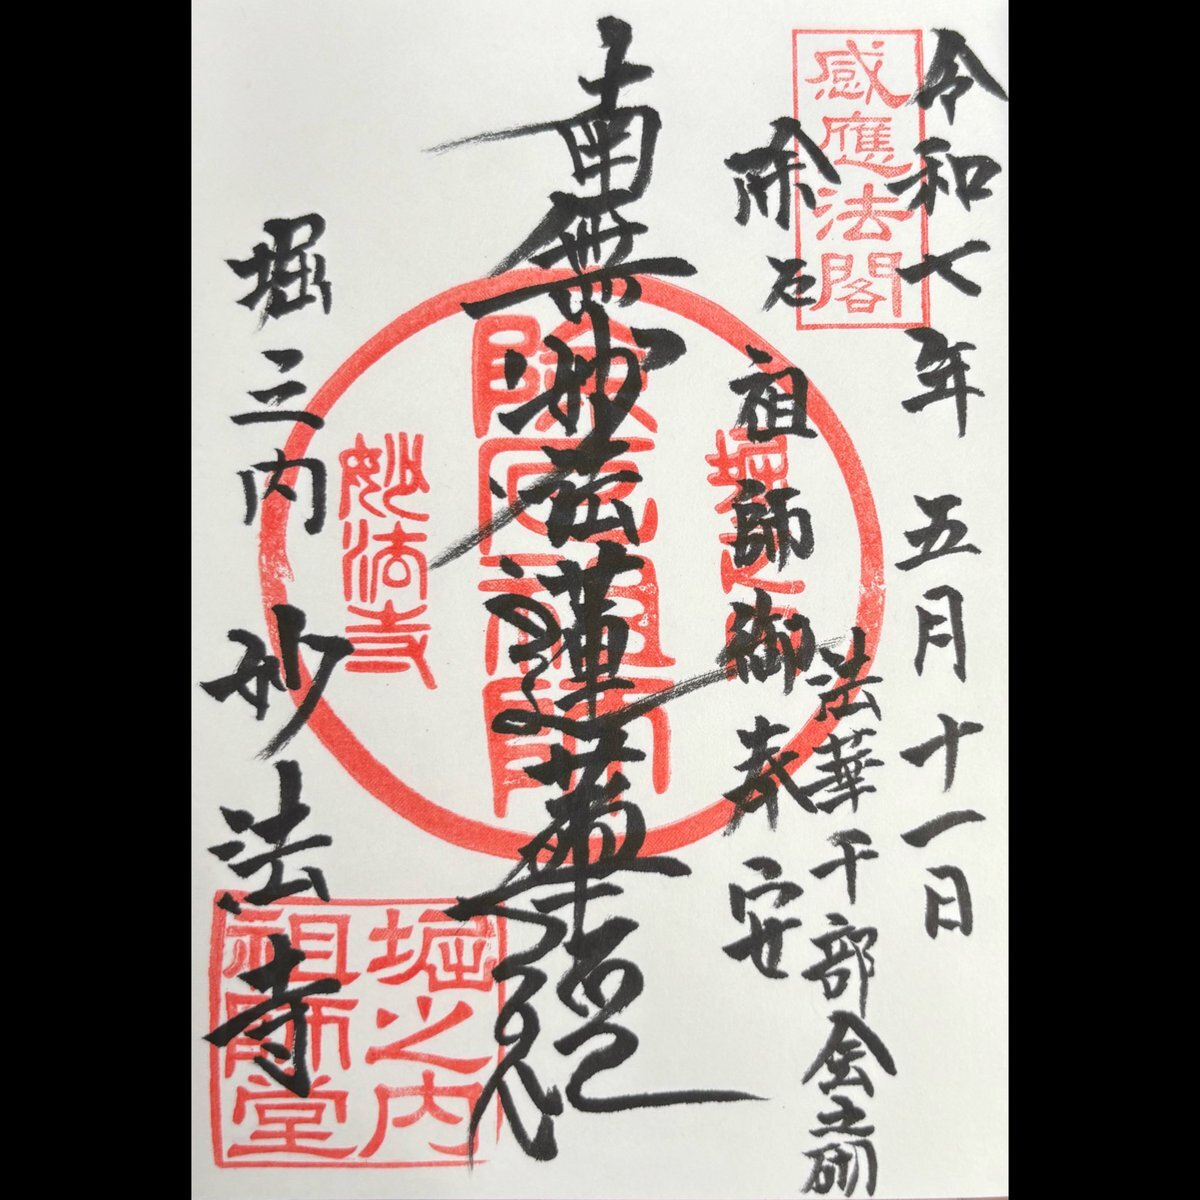 令和七年 五月十一日
感應法閣
法華千部会之砌
除厄 祖師御奉安
堀之内
南無妙法蓮華経
除厄祖師
妙法寺
堀之内 妙法寺
堀之内
祖師堂